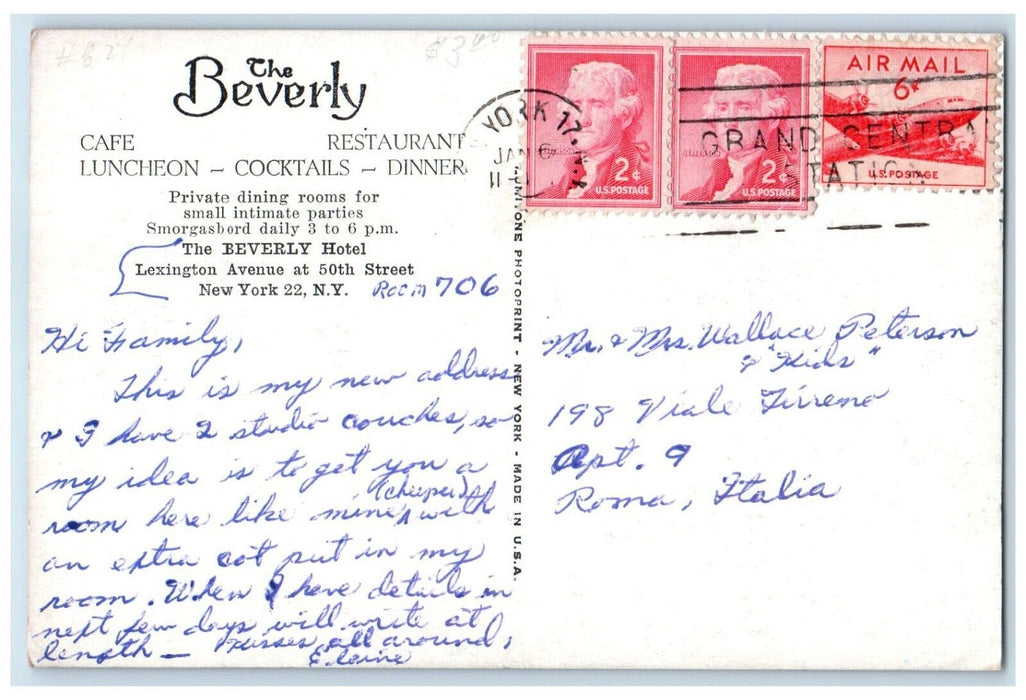 The
Beverly
CAFE RESTAURANT
LUNCHEON – COCKTAILS – DINNER
Private dining rooms for
small intimate parties
Smorgasbord daily 3 to 6 p.m.
The BEVERLY Hotel
Lexington Avenue at 50th Street
New York 22, N.Y. Room 706
Hi Family,
This is my new address
& I have 2 studio couches, so
my idea is to get you a
(cheaper)
room here like mine, with
an extra cot put in my
room. When I have details in
next few days will write at
length — Kisses all around,
Elaine
PHOTOPRINT - NEW YORK - MADE IN U.S.A.
YORK 17, N.Y.
JAN 6
11
GRAND CENTRAL
STATION
JEFFERSON
2¢
U.S. POSTAGE
JEFFERSON
2¢
U.S. POSTAGE
AIR MAIL
6¢
U.S. POSTAGE
Mr. & Mrs. Wallace Peterson
& "Kids"
198 Viale Tirreno
Apt. 9
Roma, Italia
$3.00